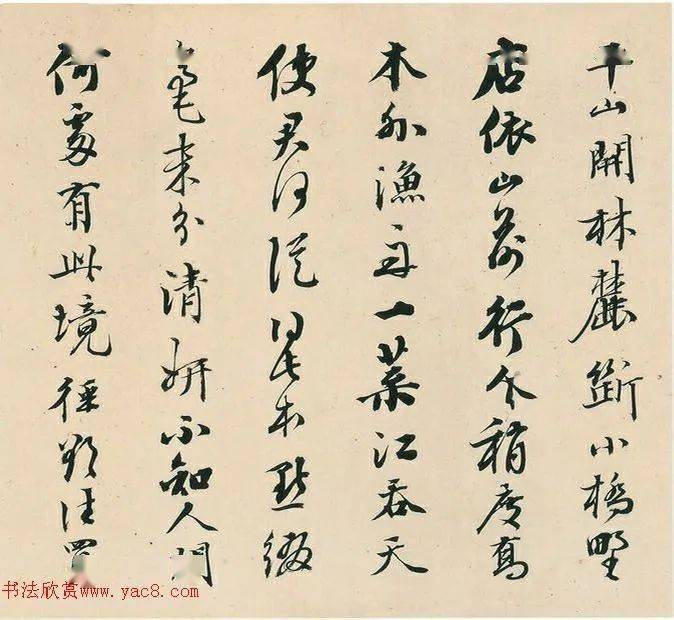 平山開林麓斷小橋野
店依山前行人稍度喬
木外漁舟一葉江吞天
使君何從得此本點綴
毫末分清妍不知人間
何處有此境徑欲往買
书法欣赏www.yac8.com